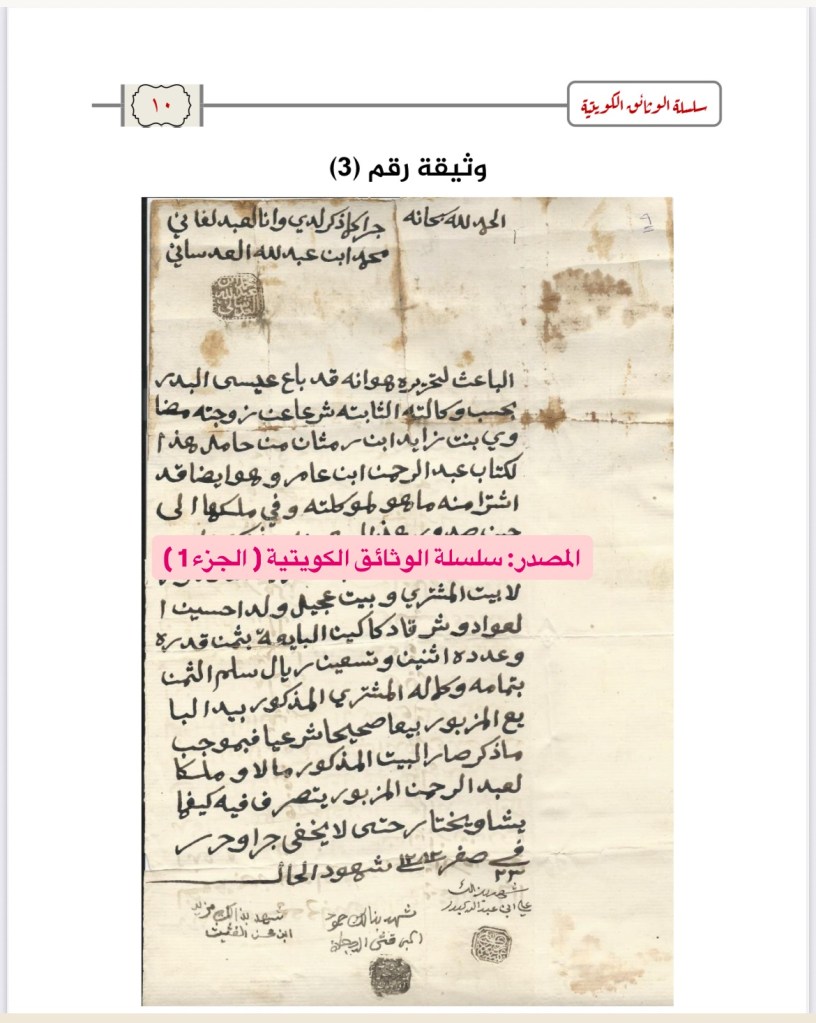 سلسلة الوثائق الكويتية
١٠
وثيقة رقم (3)
الحمد لله سبحانه
جرا كلما ذكر لدي وانا العبد لفاني
محمد ابن عبد لله العدساني
الباعث لتحريره هو انه قد باع عيسى البدر
بحسب وكالته الثابته شرعا عن زوجته مضا
وي بنت زايد ابن رمثان من حامل هذا
لكتاب عبد الرحمن ابن عامر وهو ايضا قد
اشترا منه ما هو لموكلته وفي ملكها الى
حين صدور هذا
المصدر: سلسلة الوثائق الكويتية ( الجزء 1 )
لا بيت المشتري وبيت عجيل ولد احسين ا
لعواد وشرقا دكاكين البايعة بثمن قدره
وعدده اثنين وتسعين ريال سلم الثمن
بتمامه وكماله المشتري المذكور بيد البا
يع المزبور بيعا صحيحا شرعيا فبموجب
ما ذكر صار البيت المذكور مالا وملكا
لعبد الرحمن المزبور يتصرف فيه كيفما
يشا ويختار حتى لا يخفى جرا وحرر
في ٢٣ صفر شهود الحال
شهد بذالك
شهد بذالك حمود
شهد بذالك مزيد